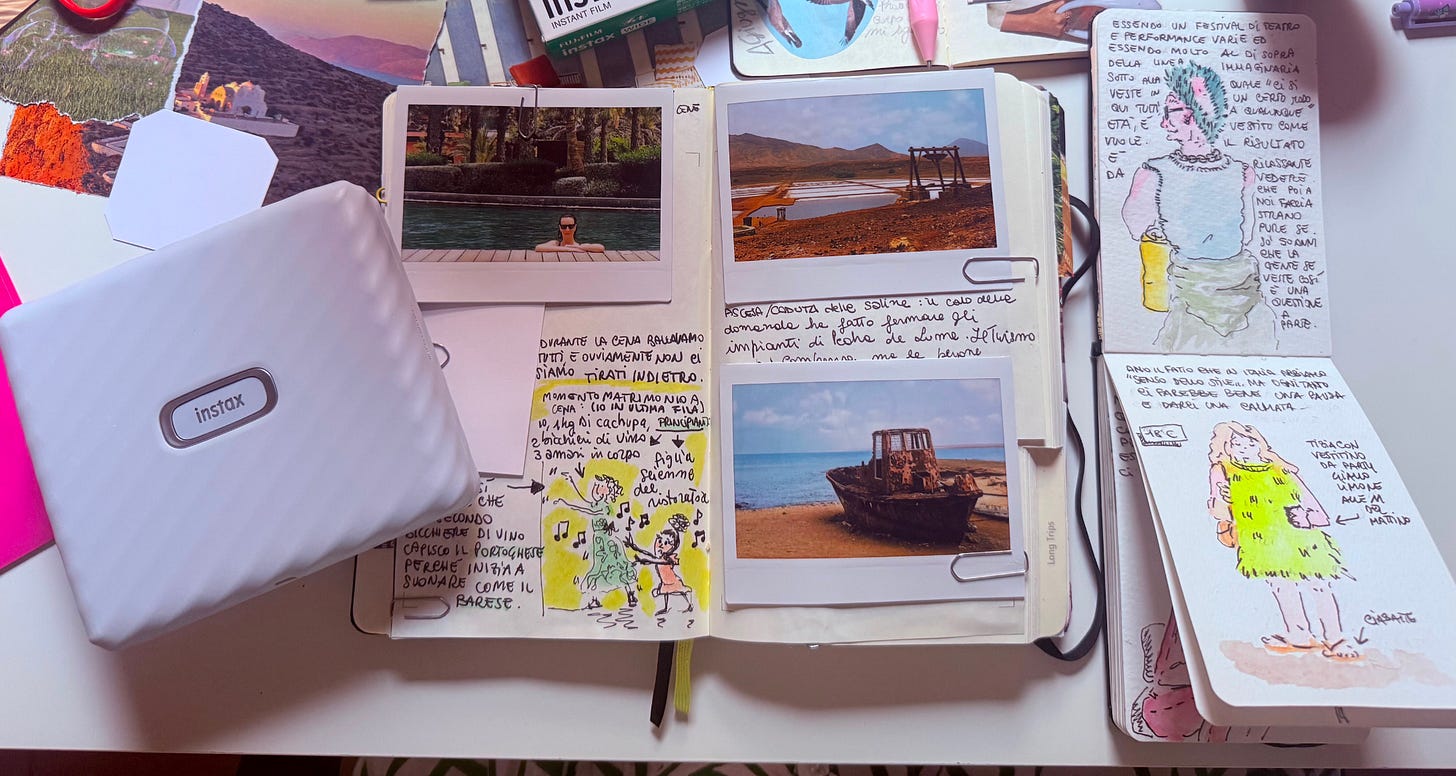 INSTANT FILM
FUJIFILM
instax WIDE
instax
CENE
DURANTE LA CENA BALLAVAMO
TUTTI, E OVVIAMENTE NON CI
SIAMO TIRATI INDIETRO.
MOMENTO MATRIMONIO A
CENA: (IO IN ULTIMA FILA)
1kg DI cachupa, PRINCIPIANTE
2 bicchieri di vino
3 amari in corpo
figlia
seienne
del
ristorator
CHE
SECONDO
BICCHIERE DI VINO
CAPISCO IL PORTOGHESE
PERCHÉ INIZIA A
SUONARE COME IL
BARESE.
ASCESA/CADUTA delle saline: il calo della
domanda ha fatto fermare gli
impianti di Pedra de Lume. Il Turismo
Long Trips
ESSENDO UN FESTIVAL DI TEATRO
E PERFORMANCE VARIE ED
ESSENDO MOLTO AL DI SOPRA
DELLA LINEA IMMAGINARIA
SOTTO ALLA QUALE "CI SI
VESTE IN UN CERTO MODO"
QUI TUTTI, A QUALUNQUE
ETÀ, È VESTITO COME
VUOLE. IL RISULTATO
È RILASSANTE
DA VEDERE.
CHE POI A
NOI FARRIA
STRANO
PURE SE
CHE LA
GENTE SE
VESTE COSÌ
È UNA
QUESTIONE
A
PARTE.
AMO IL FATTO CHE IN ITALIA ABBIAMO
"SENSO DELLO STILE", MA OGNI TANTO
CI FAREBBE BENE UNA PAUSA
E DARCI UNA CALMATA
18°C
TIZIA CON
VESTITINO
DA PARTY
GIALLO
LIMONE
ALLE 11
DEL
MATTINO
CIABATTE